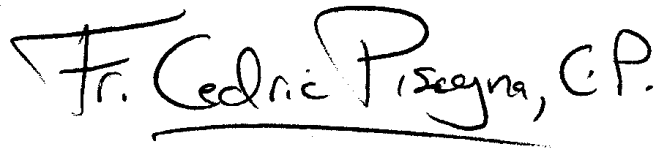 Fr. Cedric Pisegna, C.P.